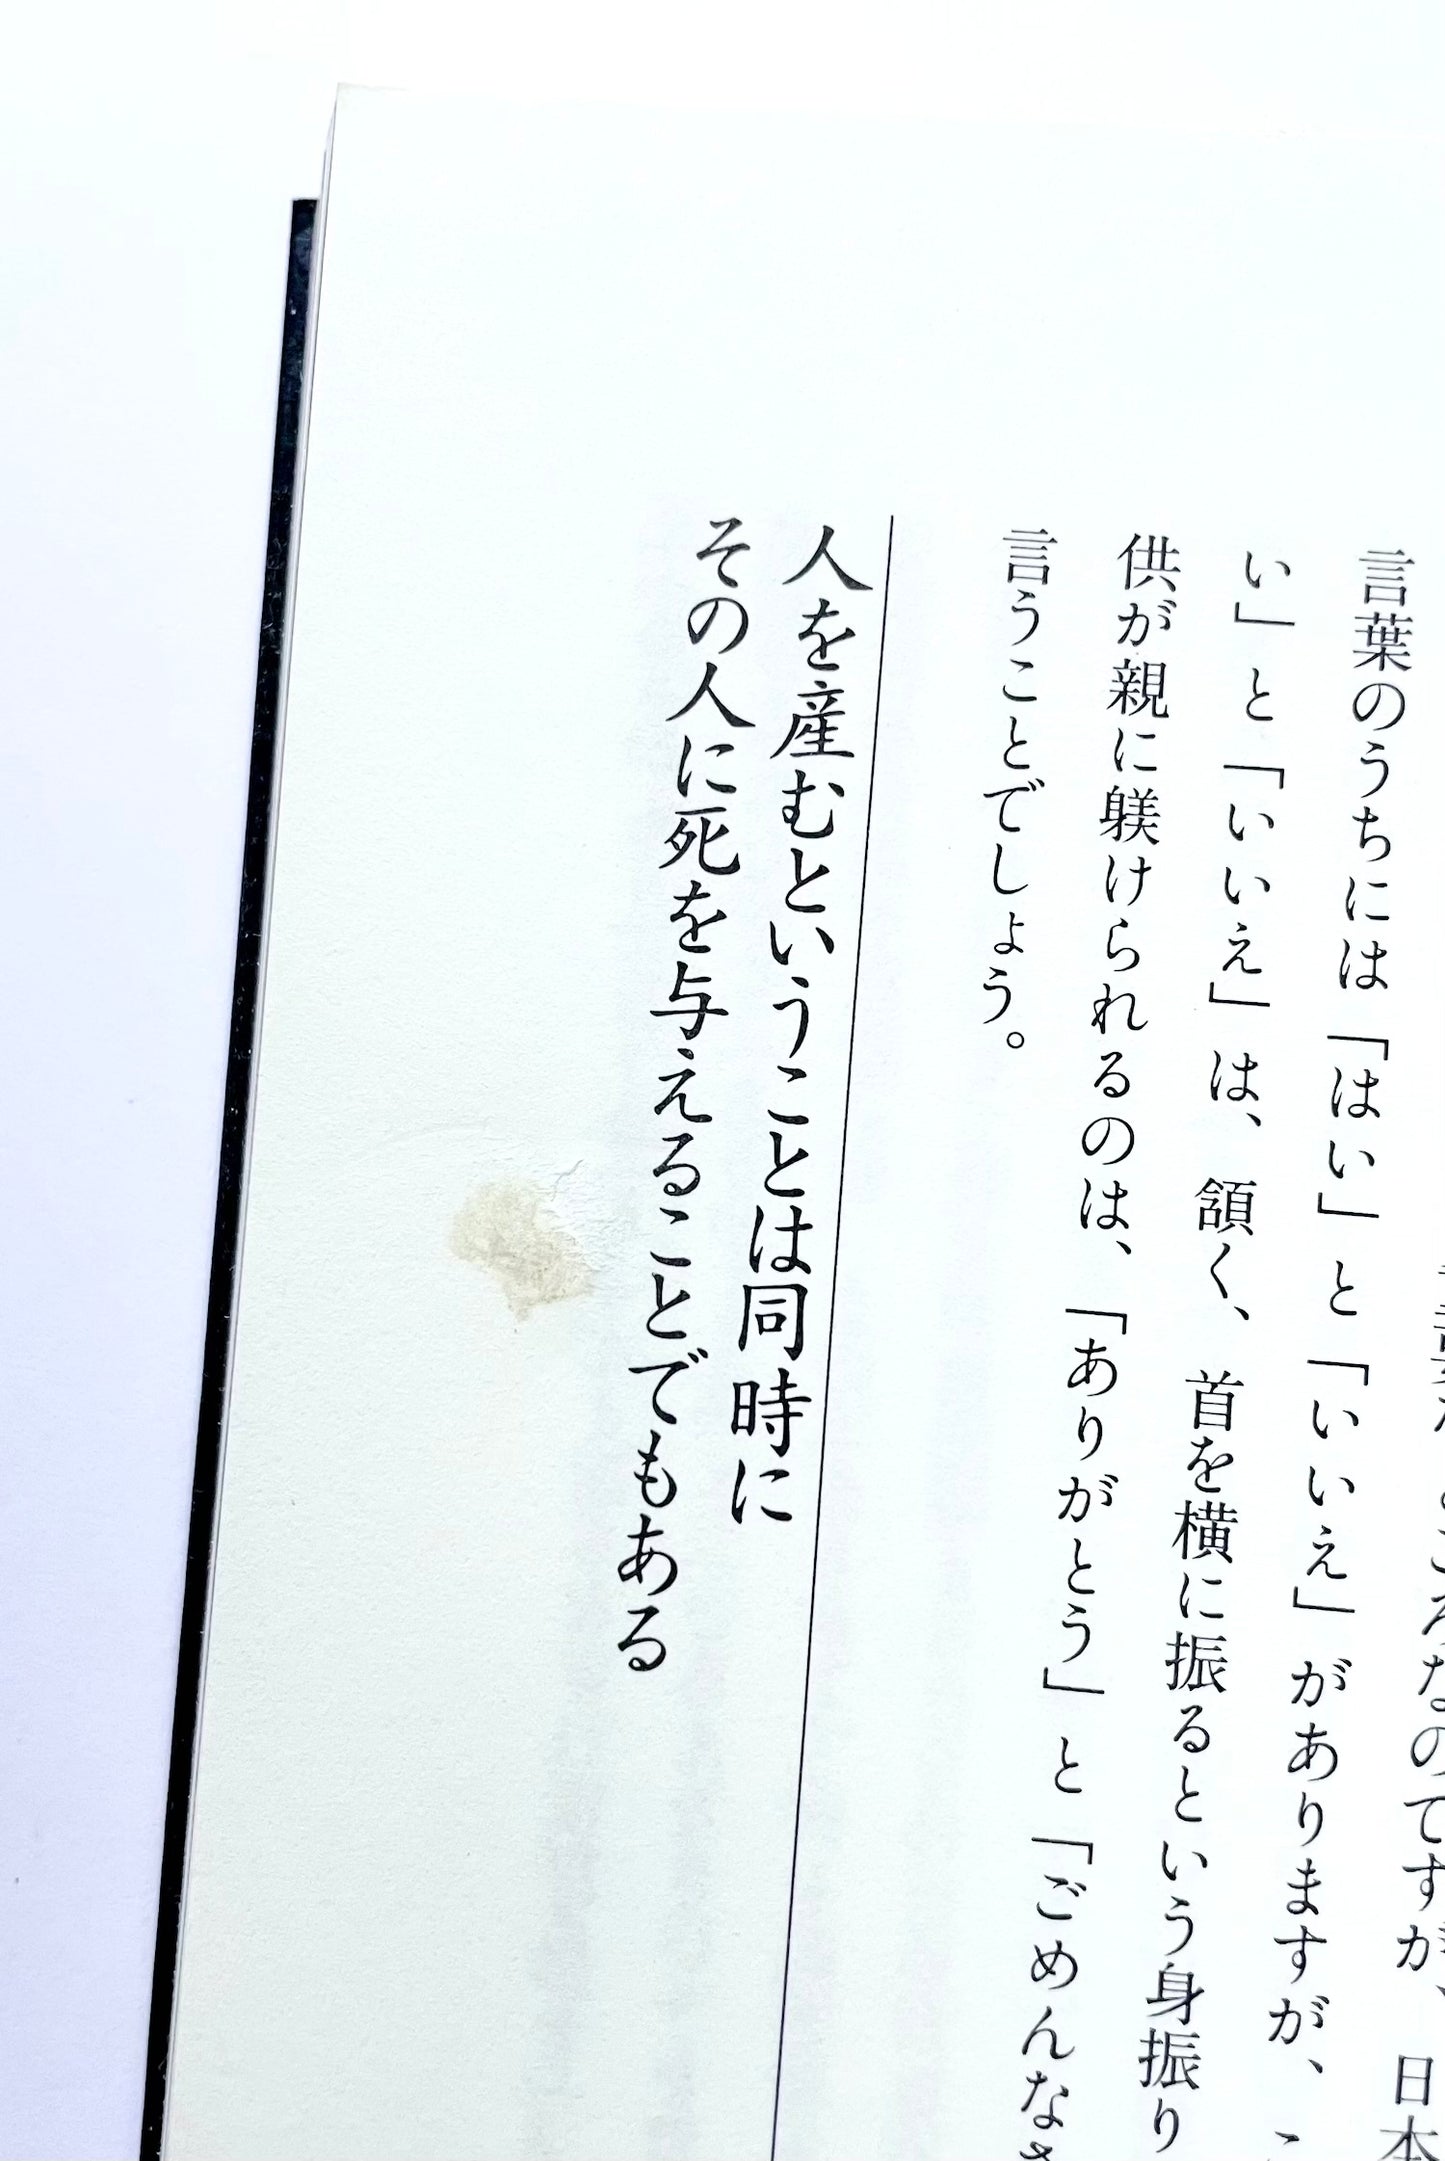 言葉のうちには「はい」と「いいえ」がありますが、
い」と「いいえ」は、頷く、首を横に振るという身振り
供が親に躾けられるのは、「ありがとう」と「ごめんな
言うことでしょう。
人を産むということは同時に
その人に死を与えることでもある